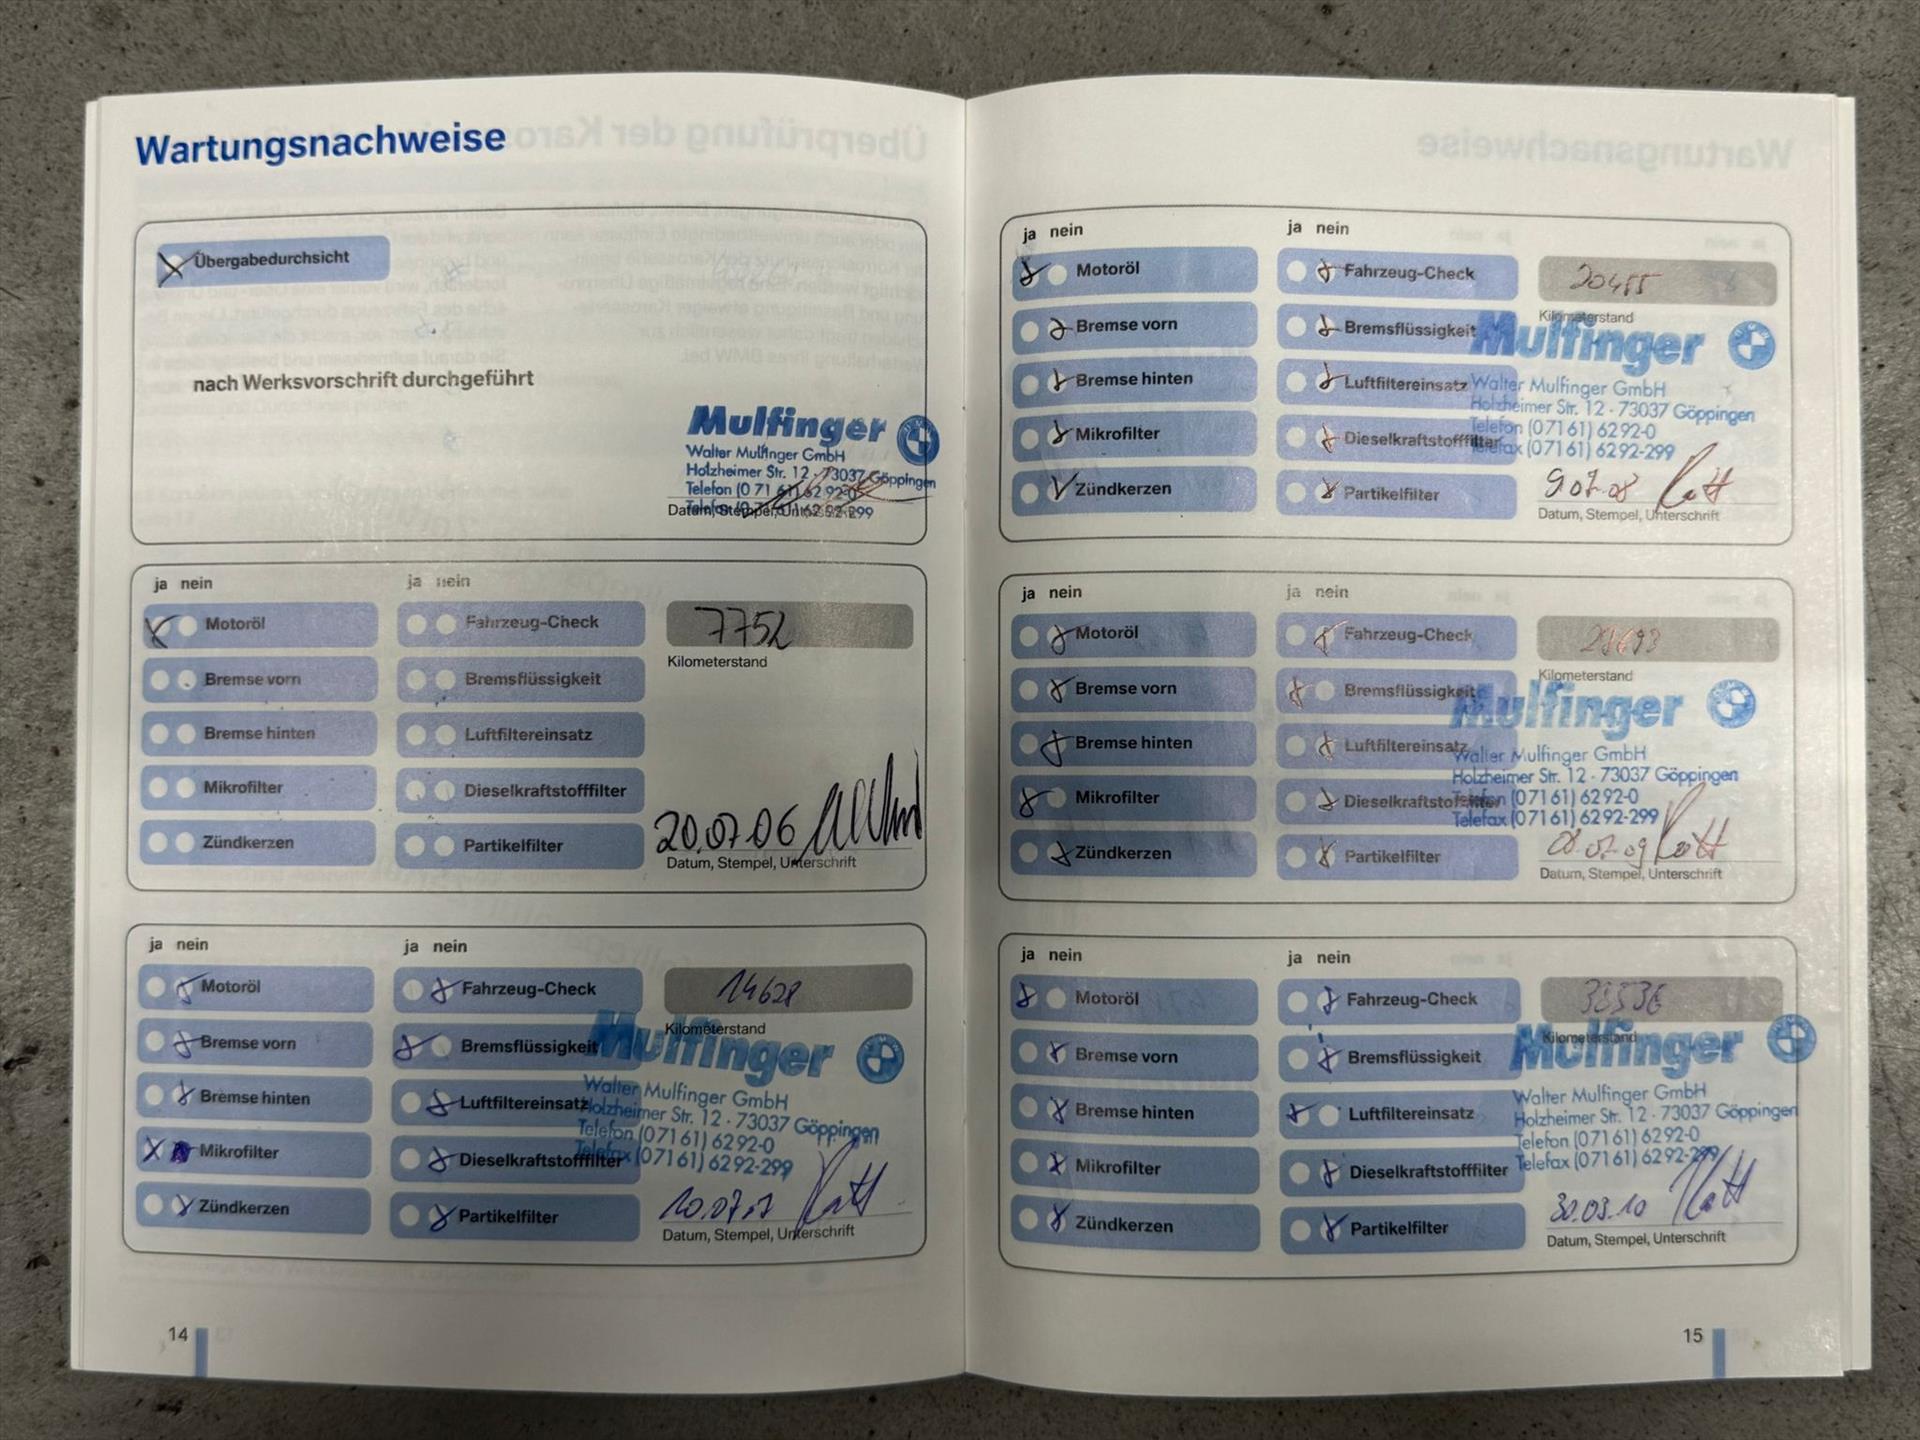 Wartungsnachweise
Übergabedurchsicht
nach Werksvorschrift durchgeführt
Mulfinger
Walter Mulfinger GmbH
Holzheimer Str. 12 · 73037 Göppingen
Telefon (0 71 61) 62 92-0
Telefax (0 71 61) 62 92-299
Datum, Stempel, Unterschrift
ja nein
ja nein
Motoröl
Fahrzeug-Check
7752
Kilometerstand
Bremse vorn
Bremsflüssigkeit
Bremse hinten
Luftfiltereinsatz
Mikrofilter
Dieselkraftstofffilter
Zündkerzen
Partikelfilter
20.07.06
Datum, Stempel, Unterschrift
ja nein
ja nein
Motoröl
Fahrzeug-Check
14628
Kilometerstand
Bremse vorn
Bremsflüssigkeit
Mulfinger
Bremse hinten
Luftfiltereinsatz
Walter Mulfinger GmbH
Holzheimer Str. 12 · 73037 Göppingen
Telefon (07161) 6292-0
Mikrofilter
Dieselkraftstofffilter
Telefax (07161) 6292-299
Zündkerzen
Partikelfilter
10.07.07
Datum, Stempel, Unterschrift
14
ja nein
ja nein
Motoröl
Fahrzeug-Check
20455
Kilometerstand
Bremse vorn
Bremsflüssigkeit
Mulfinger
Bremse hinten
Luftfiltereinsatz
Walter Mulfinger GmbH
Holzheimer Str. 12 · 73037 Göppingen
Telefon (07161) 6292-0
Mikrofilter
Dieselkraftstofffilter
Telefax (07161) 6292-299
Zündkerzen
Partikelfilter
9.07.08
Datum, Stempel, Unterschrift
ja nein
ja nein
Motoröl
Fahrzeug-Check
Kilometerstand
Bremse vorn
Bremsflüssigkeit
Mulfinger
Bremse hinten
Luftfiltereinsatz
Walter Mulfinger GmbH
Holzheimer Str. 12 · 73037 Göppingen
Mikrofilter
Dieselkraftstofffilter
Telefon (07161) 6292-0
Telefax (07161) 6292-299
Zündkerzen
Partikelfilter
08.07.09
Datum, Stempel, Unterschrift
ja nein
ja nein
Motoröl
Fahrzeug-Check
Kilometerstand
Bremse vorn
Bremsflüssigkeit
Mulfinger
Bremse hinten
Luftfiltereinsatz
Walter Mulfinger GmbH
Holzheimer Str. 12 · 73037 Göppingen
Telefon (07161) 6292-0
Mikrofilter
Dieselkraftstofffilter
Telefax (07161) 6292-299
Zündkerzen
Partikelfilter
30.03.10
Datum, Stempel, Unterschrift
15